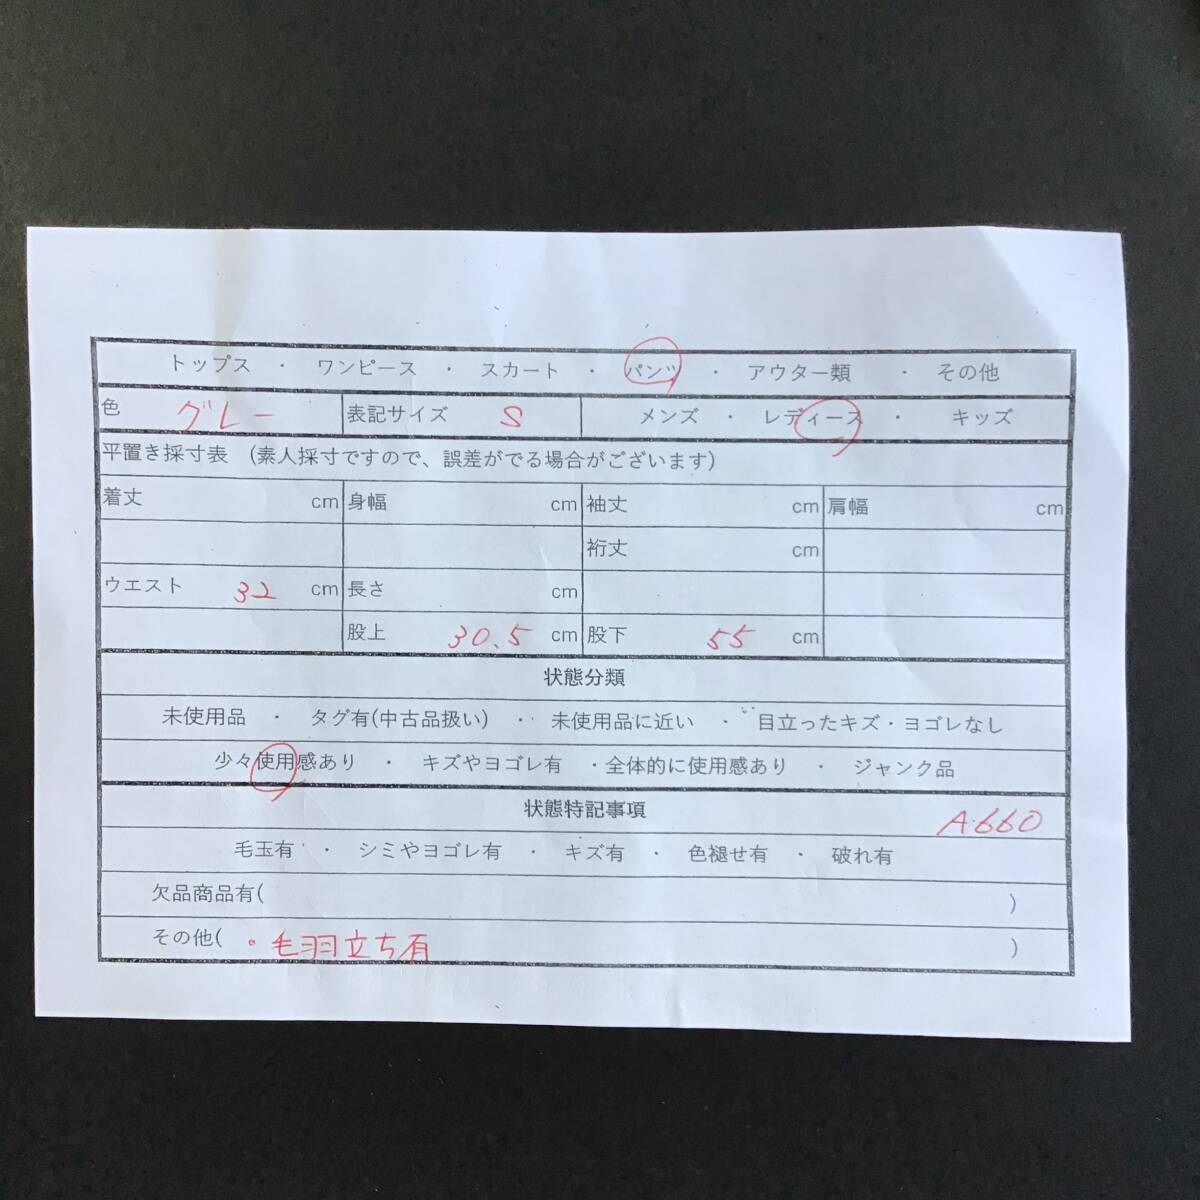 トップス ・ ワンピース ・ スカート ・ パンツ ・ アウター類 ・ その他
色 グレー 表記サイズ S メンズ ・ レディース ・ キッズ
平置き採寸表 (素人採寸ですので、誤差がでる場合がございます)
着丈 cm 身幅 cm 袖丈 cm 肩幅 cm
裄丈 cm
ウエスト 32 cm 長さ cm
股上 30.5 cm 股下 55 cm
状態分類
未使用品 ・ タグ有(中古品扱い) ・ 未使用品に近い ・ 目立ったキズ・ヨゴレなし
少々使用感あり ・ キズやヨゴレ有 ・全体的に使用感あり ・ ジャンク品
状態特記事項 A660
毛玉有 ・ シミやヨゴレ有 ・ キズ有 ・ 色褪せ有 ・ 破れ有
欠品商品有( )
その他( ・毛羽立ち有 )